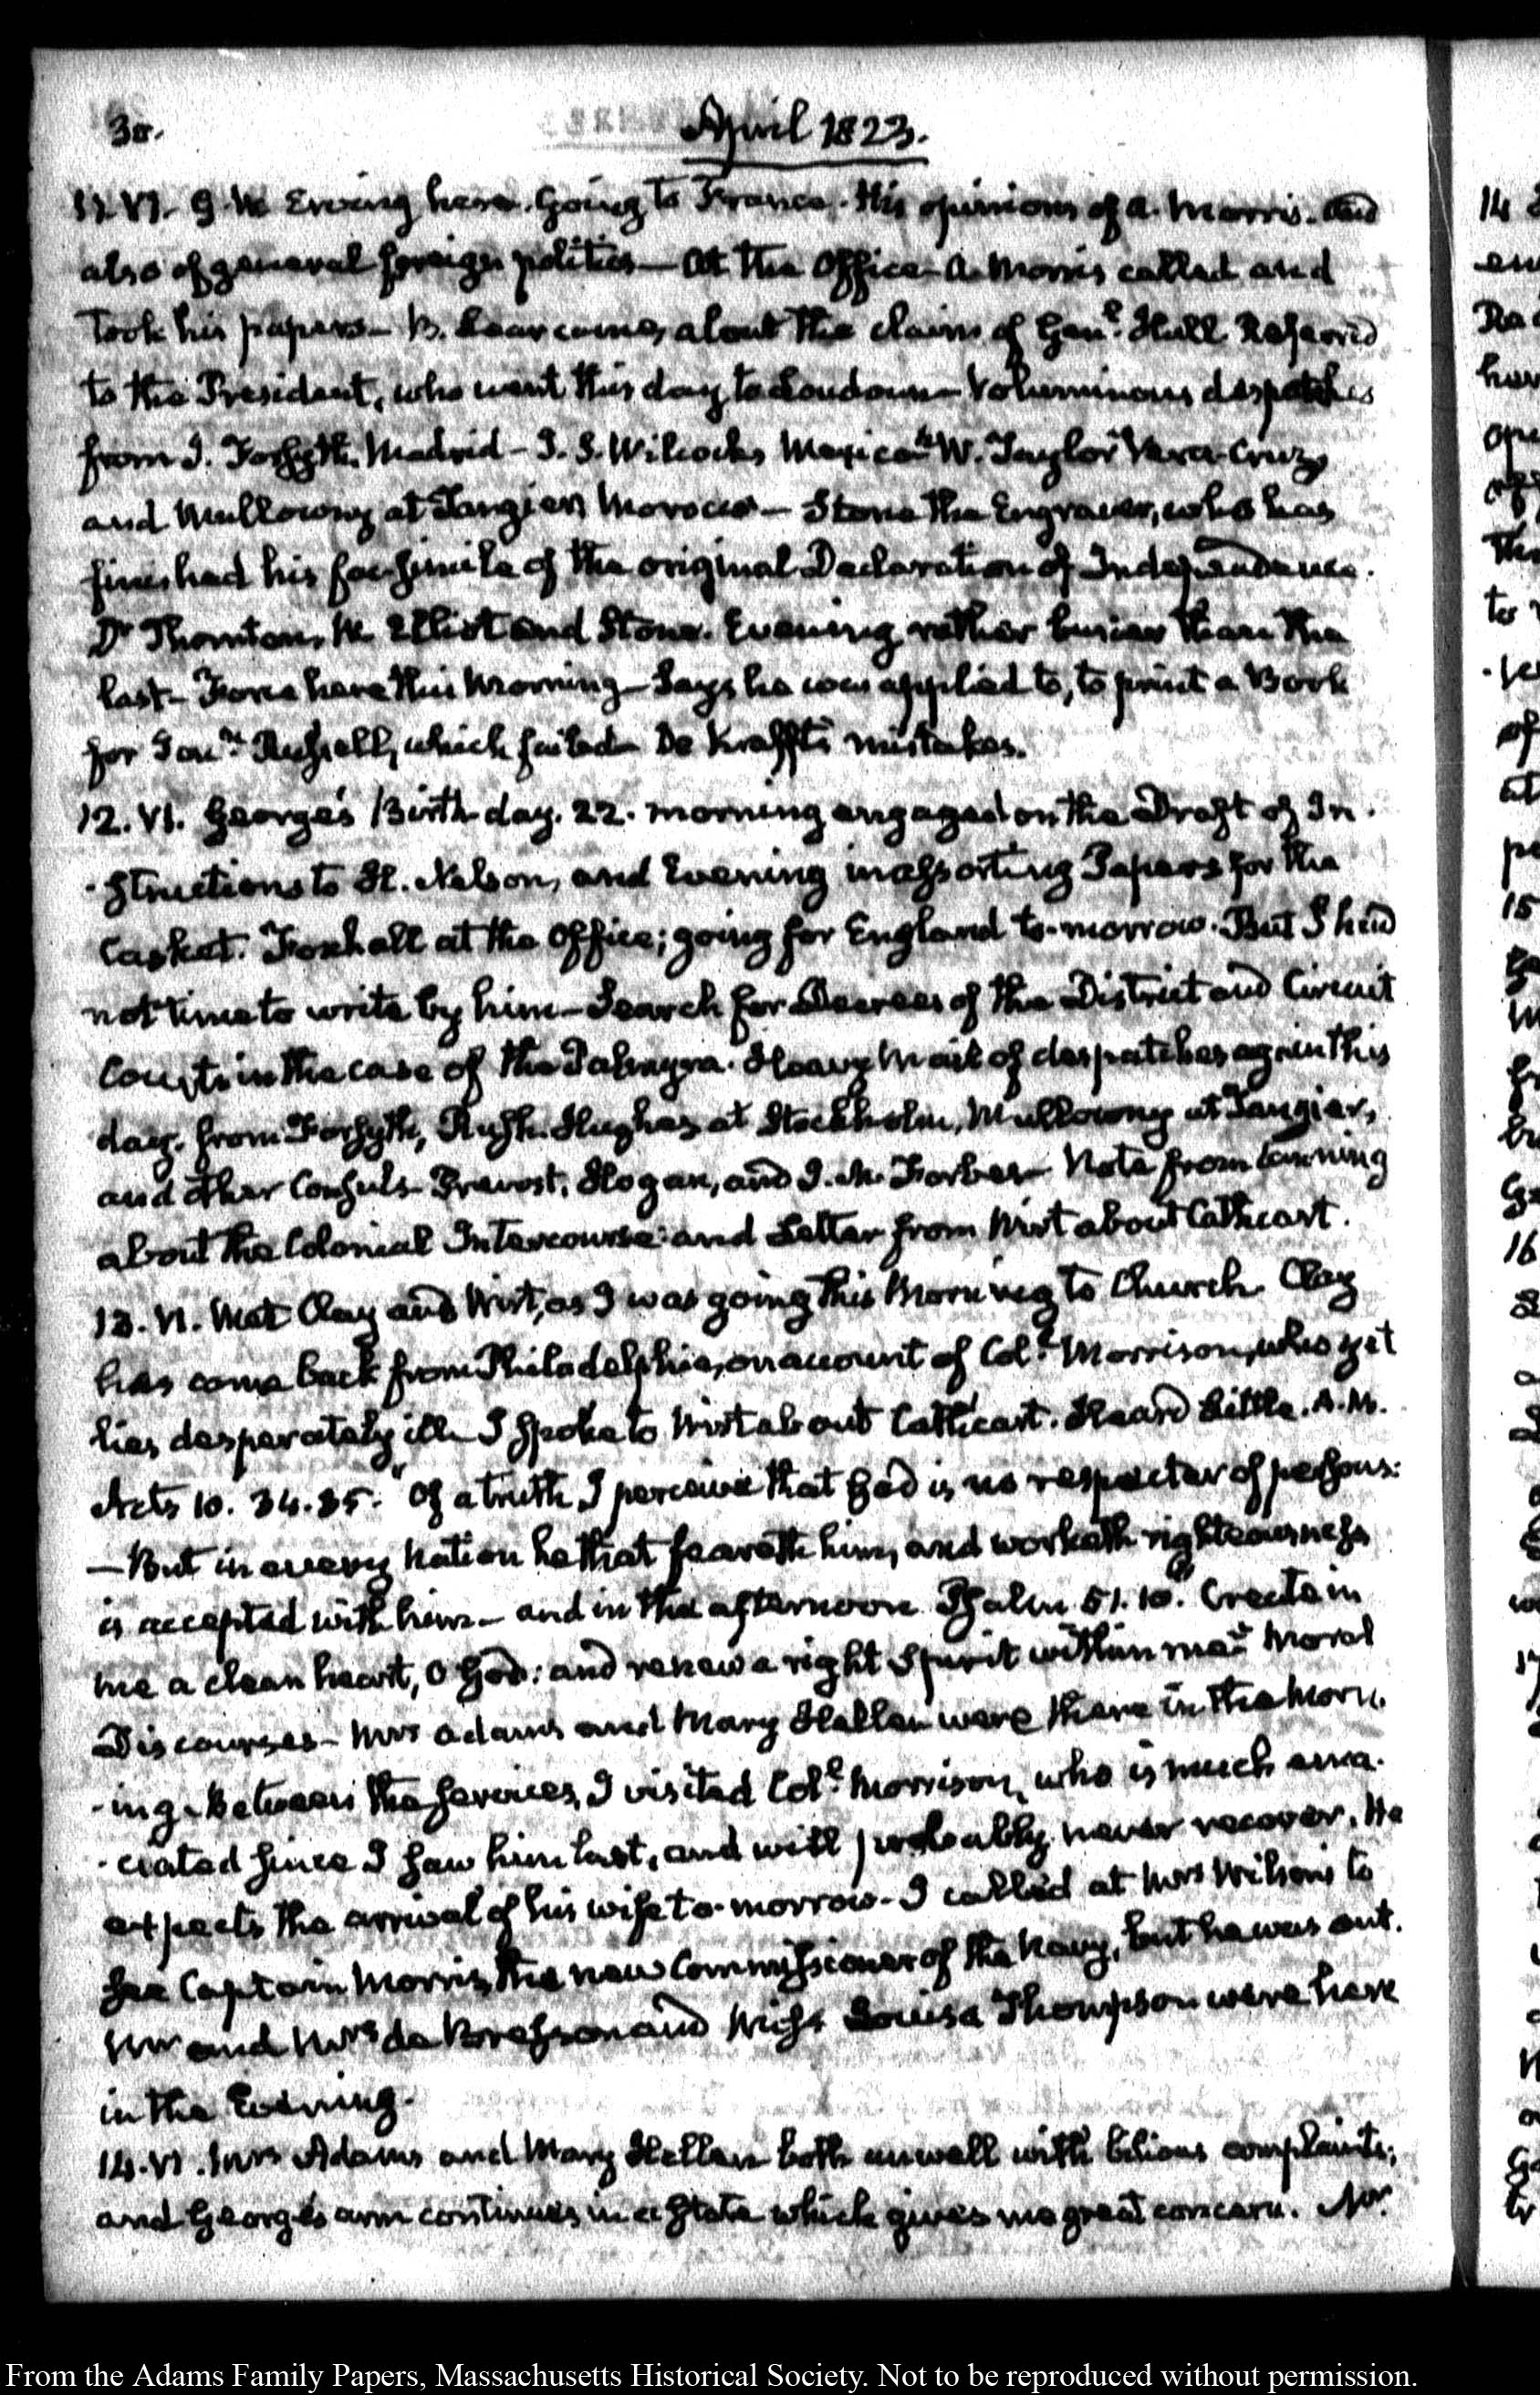 30.
April 1823.
11. VI. G. W. Erving here. Going to France. His opinions of A. Morris. And
also of general foreign politics — At the Office A. Morris called and
took his papers — B. Lear came, about the claim of Genl. Hull. Referred
to the President, who went this day to Loudoun — Voluminous despatches
from J. Forsyth, Madrid — J. S. Wilcocks Mexico W. Taylor Vera-Cruz,
and Mullowny at Tangier, Morocco — Stone the Engraver, who has
finished his fac-simile of the original Declaration of Independence.
Dr. Thornton, W. Elliot and Stone. Evening rather busier than the
last — Force here this Morning — Says he was applied to, to print a Book
for Jonn. Russell, which failed — De Krafft's mistakes.
12. VI. George's Birth-day. 22. Morning engaged on the Draft of In-
-structions to H. Nelson, and Evening in assorting Papers for the
Casket. Foxhall at the Office; going for England to-morrow. But I had
not time to write by him — Search for Decrees of the District and Circuit
Courts in the case of the Palmyra. Heavy Mail of despatches again this
day, from Forsyth, Rush, Hughes at Stockholm, Mullowny at Tangier,
and other Consuls — Prevost, Hogan, and J. M. Forbes — Note from Canning
about the Colonial Intercourse: and Letter from Wirt about Cathcart.
13. VI. Met Clay and Wirt, as I was going this Morning to Church. Clay
has come back from Philadelphia, on account of Coll. Morrison, who yet
lies desperately ill — I spoke to Wirt about Cathcart. Heard Little. A.M.
Acts 10. 34.35. "Of a truth I perceive that God is no respecter of persons:
— But in every Nation he that feareth him, and worketh righteousness
is accepted with him — and in the afternoon Psalm 51.10. "Create in
me a clean heart, O God: and renew a right Spirit within me" Moral
Discourses — Mrs Adams and Mary Hellen were there in the Morn-
-ing. Between the services, I visited Coll. Morrison, who is much ema-
-ciated since I saw him last, and will probably never recover. He
expects the arrival of his wife to-morrow — I called at Mrs Wilson's to
see Captain Morris, the new Commissioner of the Navy, but he was out.
Mr and Mrs de Bresson and Miss Louisa Thompson were here
in the Evening.
14. VI. Mrs Adams and Mary Hellen both unwell with bilious complaints;
and George's arm continues in a State which gives me great concern. Mr.
From the Adams Family Papers, Massachusetts Historical Society. Not to be reproduced without permission.